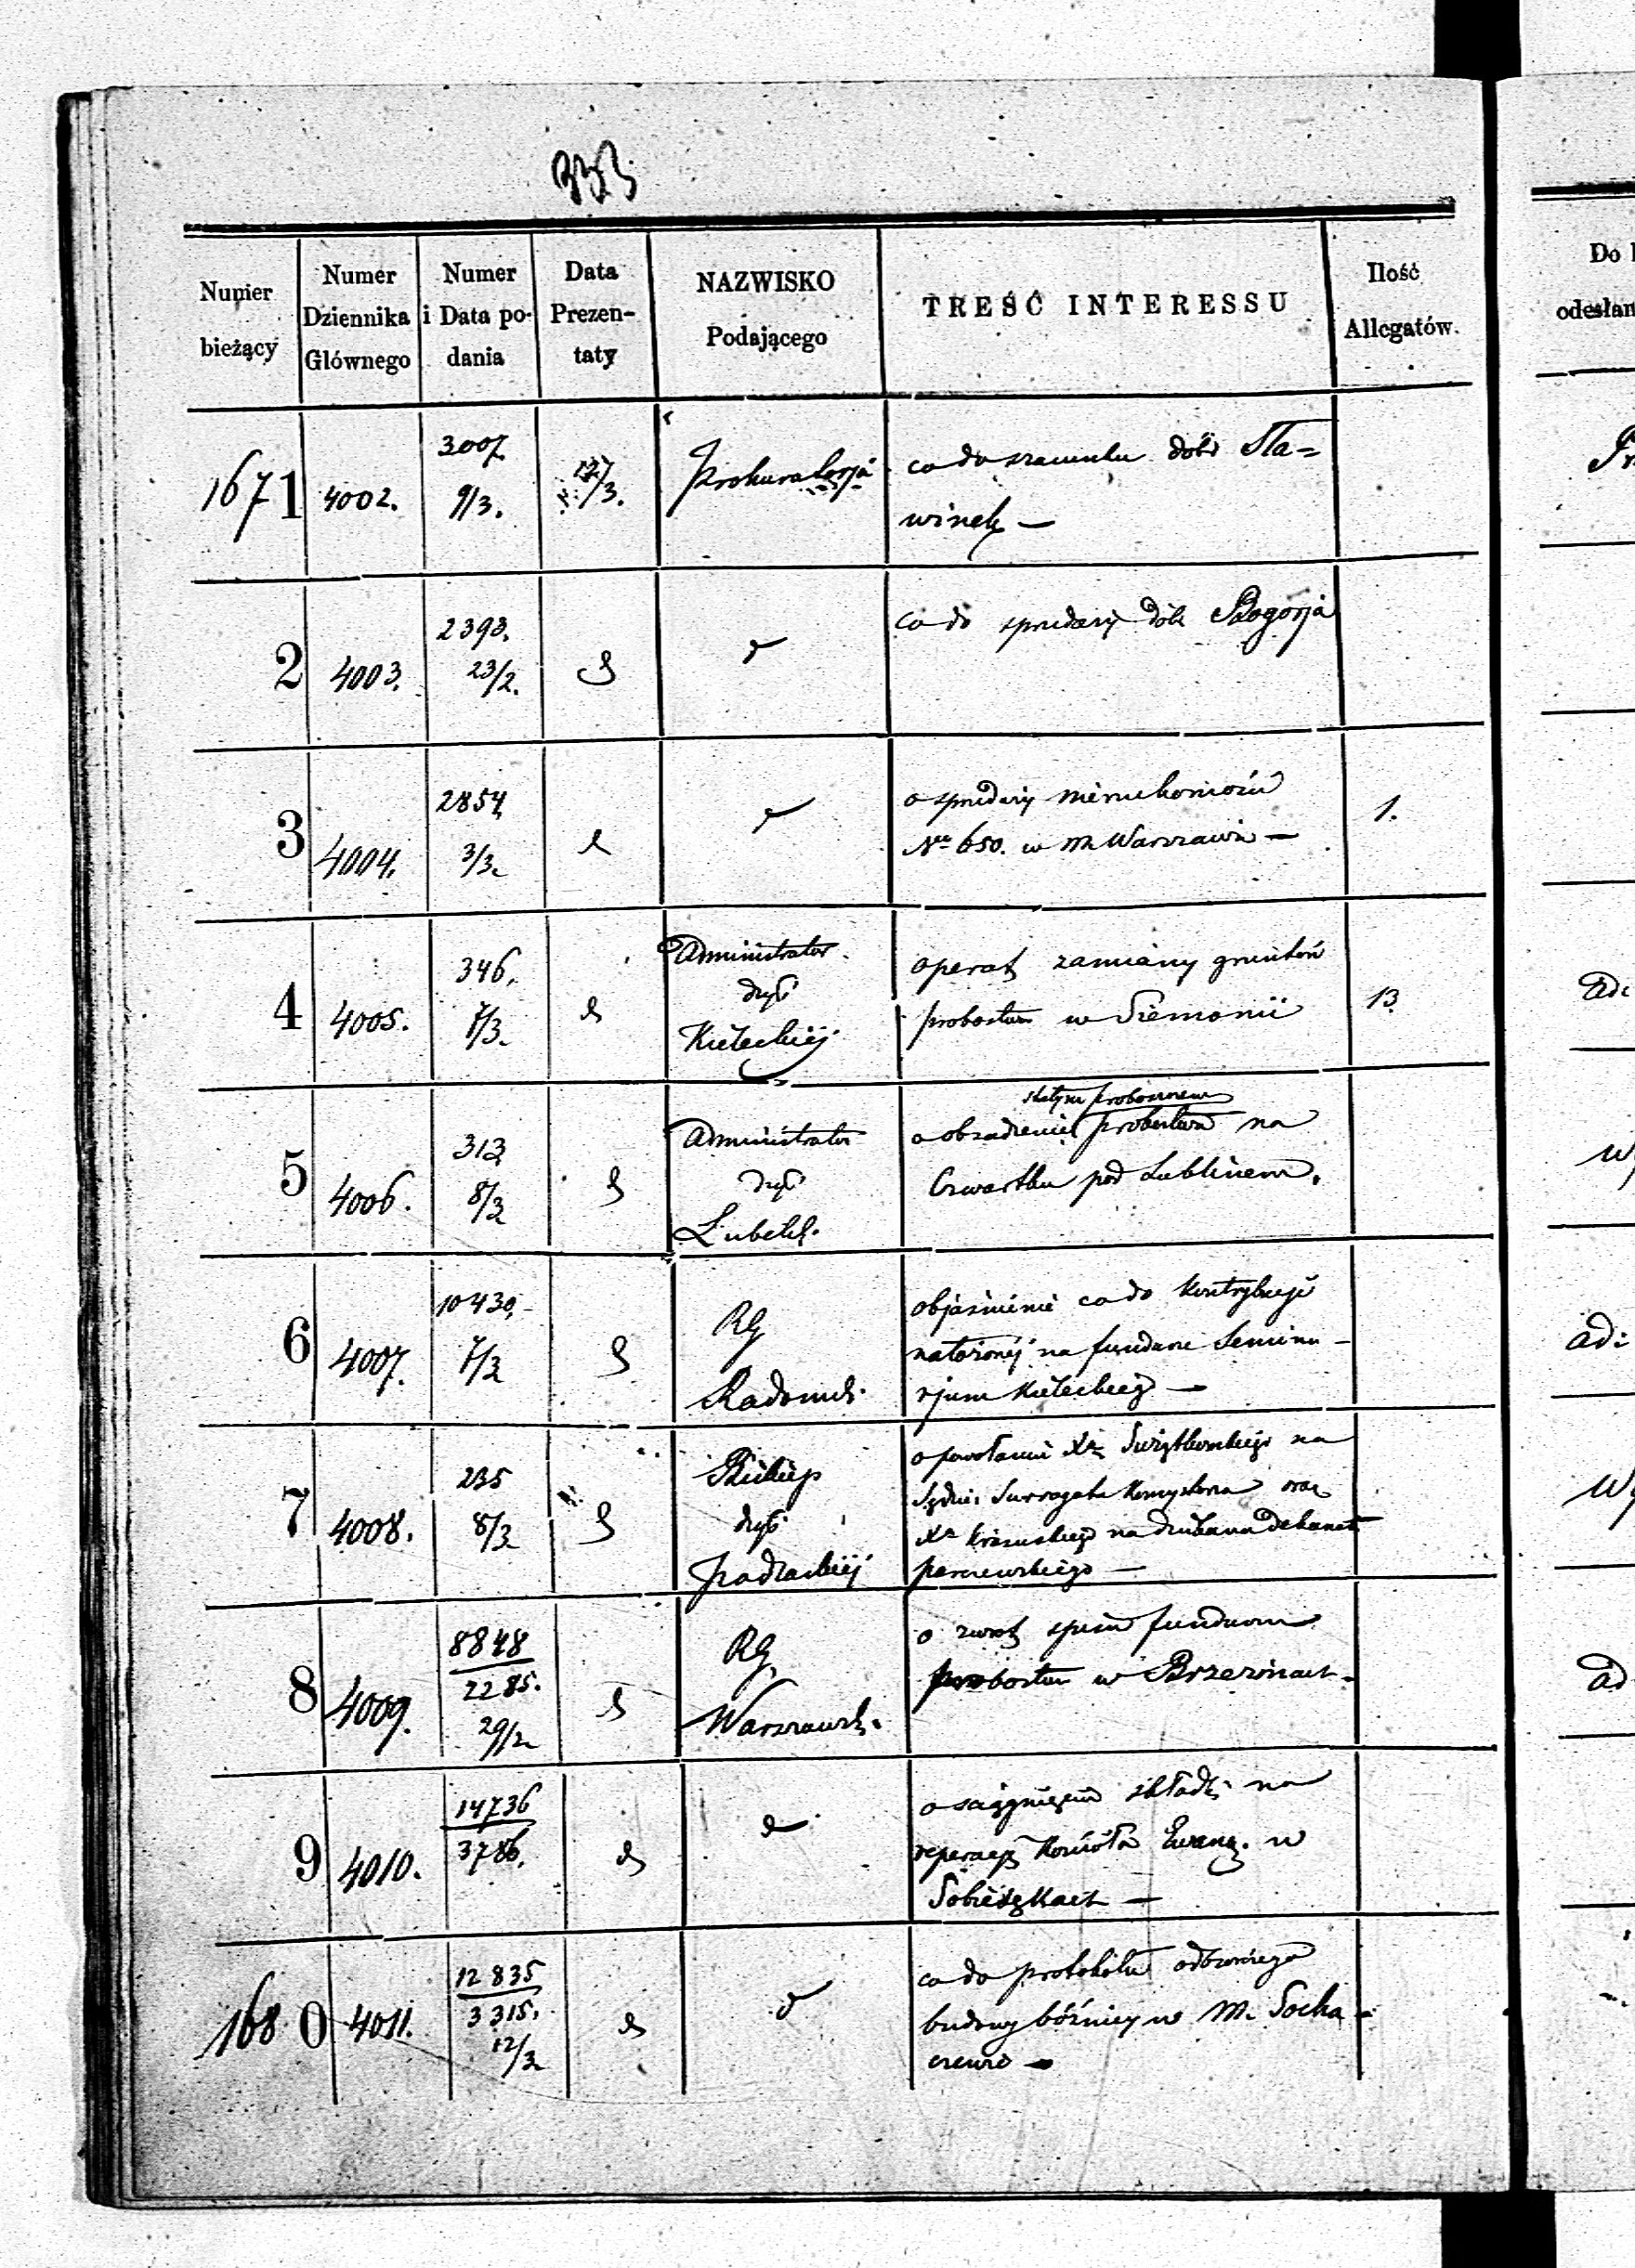 333
Numer
bieżący
Numer
Dziennika
Głównego
Numer
i Data po-
dania
Data
Prezen-
taty
NAZWISKO
Podającego
TREŚĆ INTERESSU
Ilość
Allegatów.
Do
odesłan
1671
4002.
3007.
9/3.
12/3.
Prokuratorja
co do szacunku dóbr Sła=
winek —
2
4003.
2393.
23/2.
co do sprzedaży dóbr Bogorja
3
4004.
2854
3/3
o sprzedaży nieruchomości
Nro 650. w m. Warszawie —
1.
4
4005.
346.
7/3.
Administrator
dyec
Kieleckiéj
operat zamiany gruntów
probostwa w Siemonii
13
ad:
5
4006.
313
8/3
Administrator
dyec
Lubelsk.
stałym proboszczem
o obsadzenie probostwa na
Czwartku pod Lublinem.
6
4007.
10430.
7/3
RG
Radomsk.
objaśnienie co do kontrybucji
nałożonéj na fundusze Semina-
rjum Kieleckiego —
ad:
7
4008.
235
8/3
Biskup
dyec
Podlaskiéj
o powołanie Xa na
Sędzie: Surrogata Konsystorza oraz
Xa na dziekana Dekanatu
parczewskiego —
8
4009.
8848
2285.
29/2
RG
Warszawsk.
o zwrot funduszu
probostwa w Brzezinach.
ad
9
4010.
14736
3786.
o ściągnięcie składki na
reperacją Kościoła Ewang. w
Sobiesękach —
1680
4011.
12835
3315.
12/3
co do protokołu odbiorczego
budowy bóżnicy w M. Socha=
czewie —